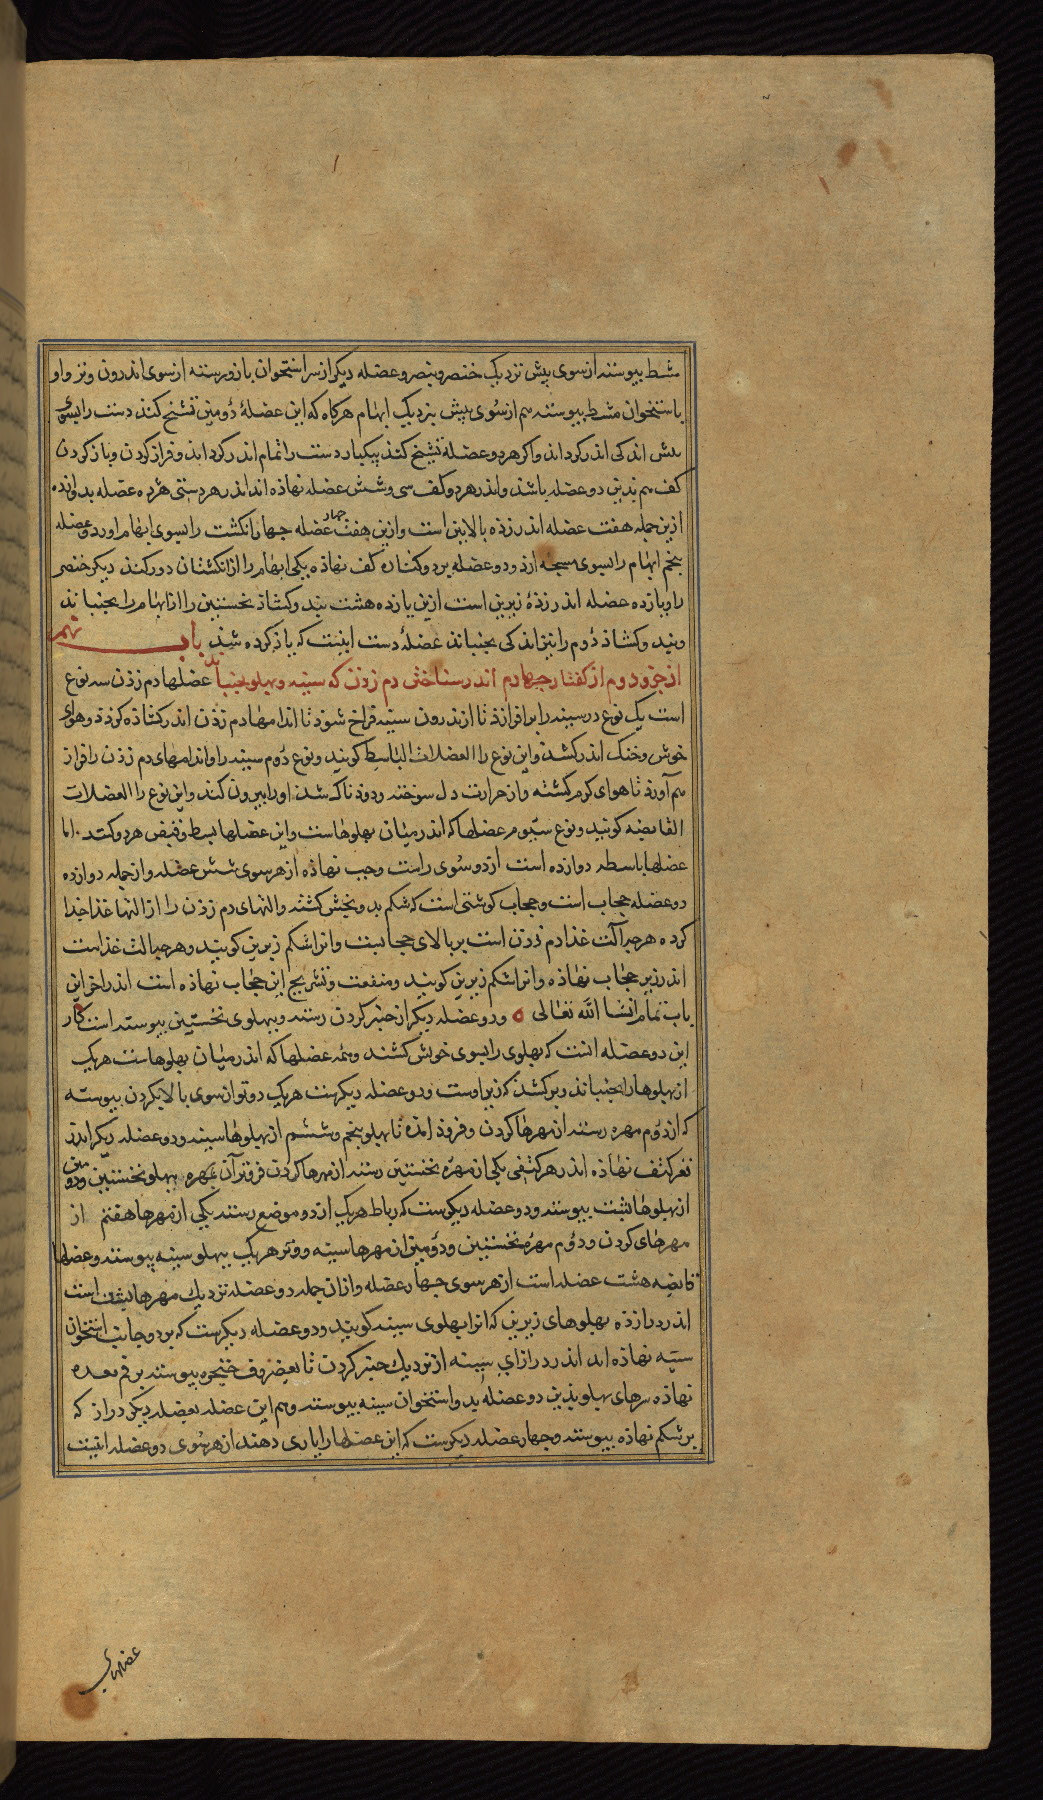 مشط پیوسته از سوی پیش نزدیک خنصر و بنصر و عضله دیکر از سر استخوان بازو رسته از سوی اندرون و تر او
با ستخوان مشط پیوسته هم از سُوی پیش نزدیک ابهام هرکاه که این عضلهٔ دُومین تشنج کند دست را بسوی
اندکی اندر کرداند و اکر هر دو عضله تشنج کند بیکبار دست را تمام اندر کرداند و فراز کردن و باز کردن
کف هم بدین دو عضله باشد و اندر هر دو کف سی و شش عضله نهاذه اند اندر هر دستی هژده عضله
ازین جمله هفت عضله اندر زده بالایین است و ازین هفت چهار عضله جهار انکشت را بسوی ابهام اورد و عضله
پنجم ابهام را بسوی سبحه ارد و دو عضله بر دو کناره کف نهاذه یکی ابهام را از انکشتان دور کند دیکر خنصر
را و یازده عضله اندر زدهٔ زیرین است ازین یازده هشت بند و کشاذ نخستین را از ابهام را بجنباند
و بند و کشاذ دُوم را نیز اندکی بجنباند عضلهٔ دست اینست که یاذ کرده شد باب نهم
از جزو دوم از کفتار جهارم اندر شناختن دم زدن که سینه و پهلو بجنباند عضلها دم زدن سه نوع
است یک نوع در سینه را بر افرازد تا از اندرون سینه فراخ شود تا اندامها دم زدن اندر کشاذه کردد و هوای
خوش و خنک اندر کشد و این نوع را العضلات الباسط کویند و نوع دُوم سینه را و اندامهای دم زدن را فراز
هم آورد تا هوای کرم کشته و از حرارت دل سوخته و دودناک شده او را بیرون کند و این نوع را العضلات
القابضه کویند و نوع سیوم عضلها که اندر میان پهلوهاست و این عضلها بسط و قبض هر دو کند . اما
عضلها باسطه دوازده است از دو سُوی راست و چب نهاذه از هر سوی شش عضله و از جمله دوازده
دو عضله حجاب است و حجاب کوشتی است که شکم بدو بخش کشته و التهای دم زدن را از التها غذا جدا
کرده هرجه آلت دم زدن است بر بالای حجابست و انرا شکم زبرین کویند و هرجه الت غذاست
اندر زیر حجاب نهاذه و انرا شکم زیرین کویند و منفعت و تشریح این حجاب نهاذه است اندر اخر این
باب تمام انشا الله تعالی ه و دو عضله دیکر از کردن رسته و بپهلوی نخستین پیوسته است کار
این دو عضله انست که پهلوی را بسوی خویش کشند و همه عضلها که اندر میان پهلوهاست هر یک
از پهلوها را بجنباند و بر کشد که زیر اوست و دو عضله دیکرست هر یک دو تو از سوی بالا بکردن پیوسته
که از دُوم مهره رسته از مهرها کردن و فروذ امذه تا پهلو پنجم و ششم از پهلوها سینه و دو عضله دیکر اندر
نعر کتف نهاذه اندر هر کتفی یکی از مهرهٔ نخستین رسته از مهرها کردن فروتر آن بمهره پهلو نخستین و دومین
از پهلوها پشت پیوسته و دو عضله دیکرست که رباط هر یک از دو موضع رسته یکی از مهرها هفتم از
مهرهای کردن و دُوم مهره نخستین و دُومین از مهرها سینه و وتر هر یک بپهلو سینه پیوسته و عضلها
قابضه هشت عضله است از هر سوی جهار عضله و از ان جمله دو عضله نزدیک مهرها پشت است
اندر درازذه پهلوهای زیرین که انرا پهلوی سینه کویند و دو عضله دیکرست که بر دو جانب استخوان
سینه نهاذه اند اندر درازای سینه از نزدیک کردن تا بغضروف خنجره پیوسته بر فم معده
نهاذه سرهای پهلو بدین دو عضله بدو استخوان سینه پیوسته و هم این عضله بعضله دیکر دراز که
بر شکم نهاذه پیوسته و جهار عضله دیکرست که این عضلها را یاری دهند از هر سُوی دو عضله اینست
عضلهای